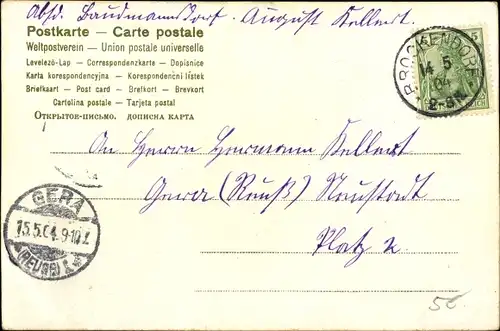 Absd. Baudmannsdorf. August Kellert.
Postkarte — Carte postale
Weltpostverein — Union postale universelle
Levelező-Lap — Correspondenzkarte — Dopisnice
Karta korespondencyjna — Korespondenční lístek
Briefkaart — Post card — Brefkort — Brevkort
Cartolina postale — Tarjeta postal
Открытое-письмо. дописна карта
BROCKENDORF
14 5
04
2-3 N
An Herrn Hermann Kellert
Gera (Reuß) Neustadt
Platz 2
GERA
15.5.04. 9-10 V.
(REUSS)
5€